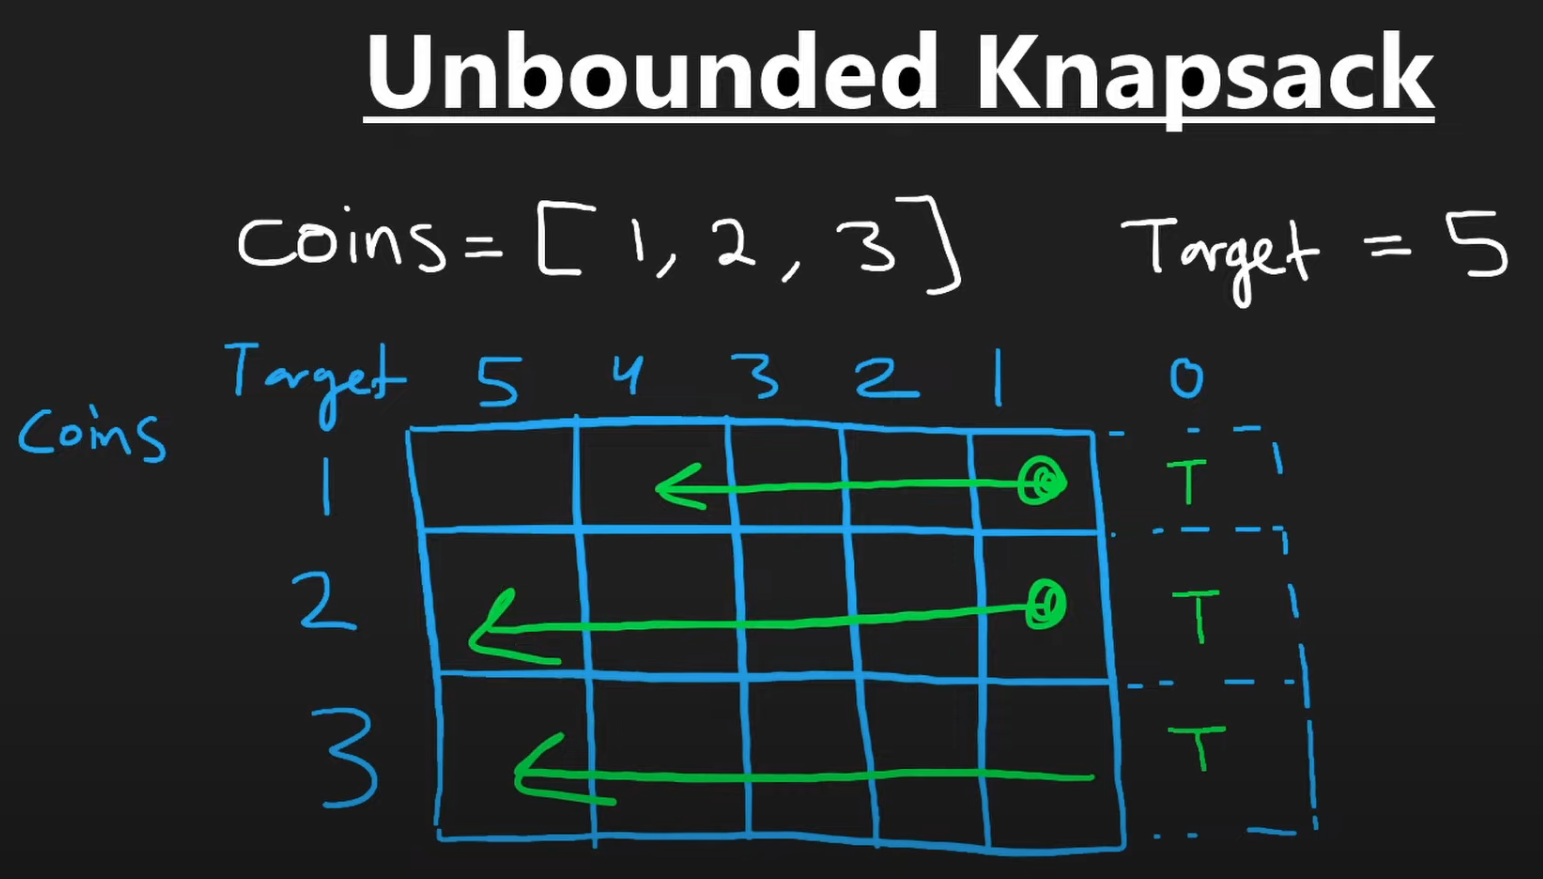 Unbounded Knapsack
Coins = [ 1, 2, 3 ] Target = 5
Target 5 4 3 2 1 0
Coins
1 T
2 T
3 T